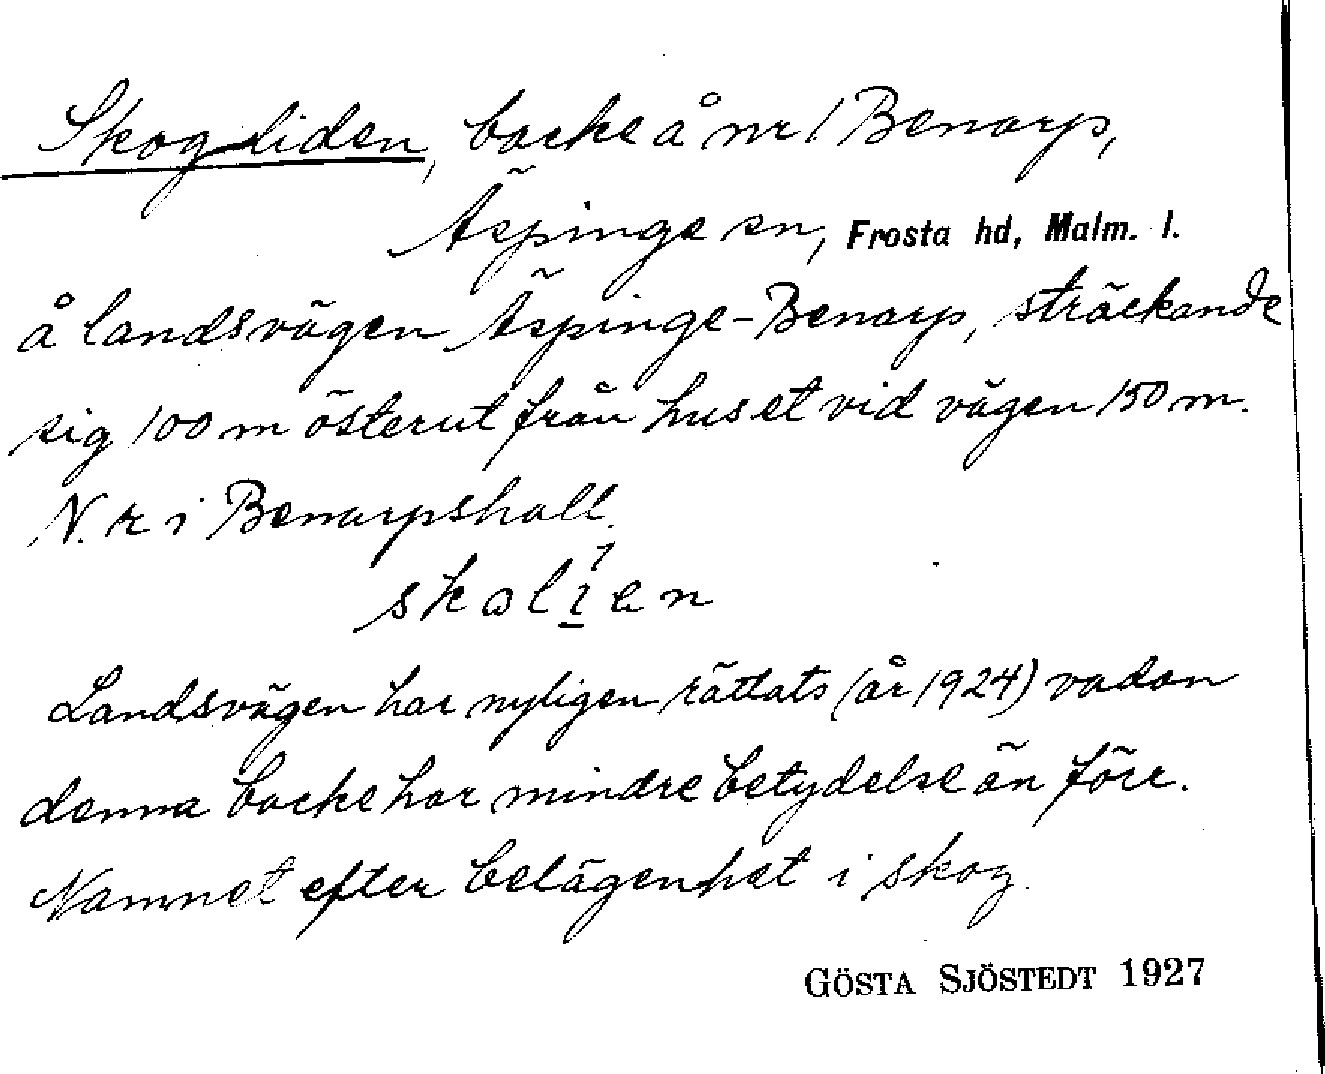 Skogliden, backe å nr 1 Benarp,
Äspinge sn, Frosta hd, Malm. l.
å landsvägen Äspinge-Benarp, sträckande
sig 100 m österut från huset vid vägen 150 m.
N. k i Benarpshall.
skalien
Landsvägen har nyligen rättats (år 1924) vadan
denna backe har mindre betydelse än förr.
Namnet efter belägenhet i skog.
GÖSTA SJÖSTEDT 1927